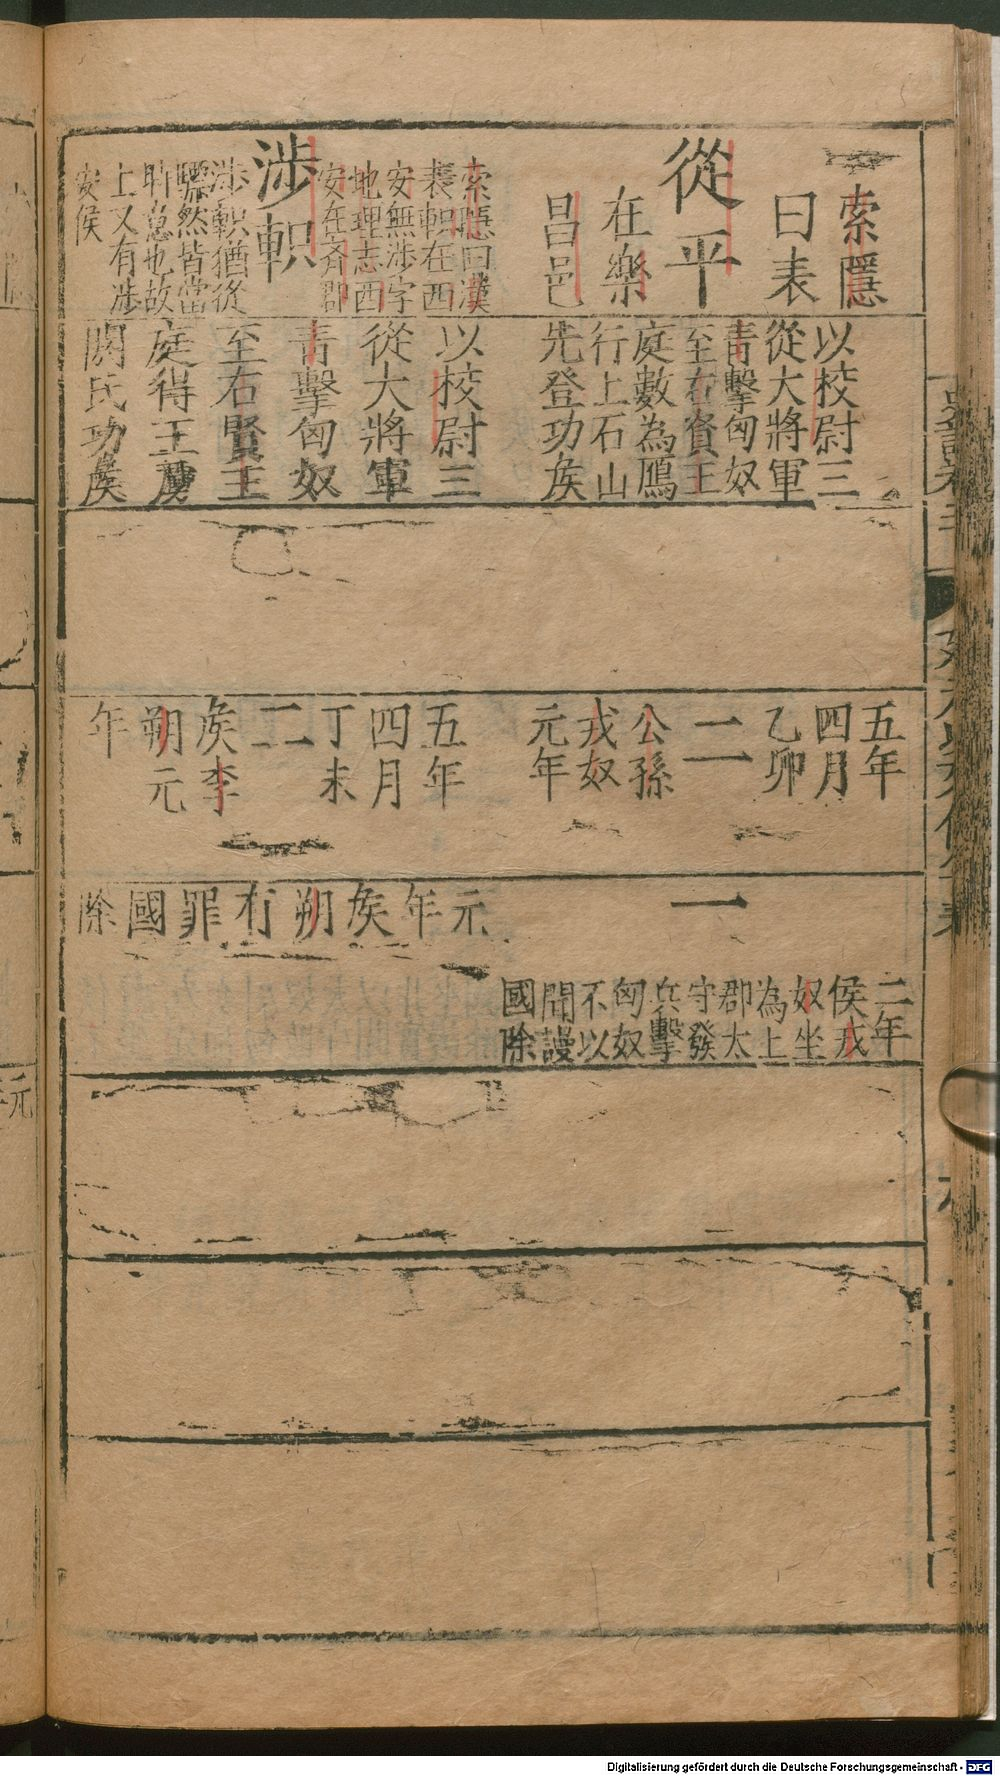 從平
索隱
曰表
在樂
昌邑
以校尉三
從大將軍
青擊匈奴
至右賢王
庭數為鴈
行上石山
先登功侯
五年
四月
乙卯
二
公孫
戎奴
元年
一
二年
侯戎
奴坐
為上
郡太
守發
兵擊
匈奴
不以
聞謾
國除
涉軹
索隱曰漢
表軹在西
安無涉字
地理志西
安在齊郡
涉軹猶從
驃然皆當
時意也故
上又有涉
安侯
以校尉三
從大將軍
青擊匈奴
至右賢王
庭得王虜
閼氏功侯
五年
四月
丁未
二
侯李
朔元
年
元年侯朔有罪國除
Digitalisierung gefördert durch die Deutsche Forschungsgemeinschaft - DFG